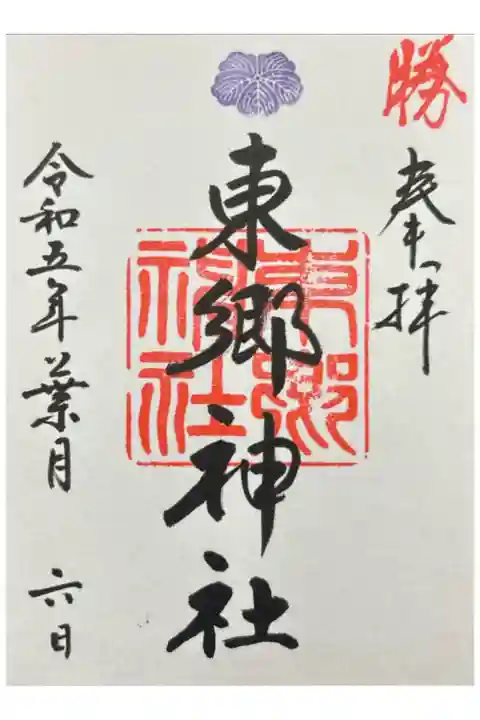 勝
奉拝
東郷神社
東郷
神社
令和五年葉月 六日